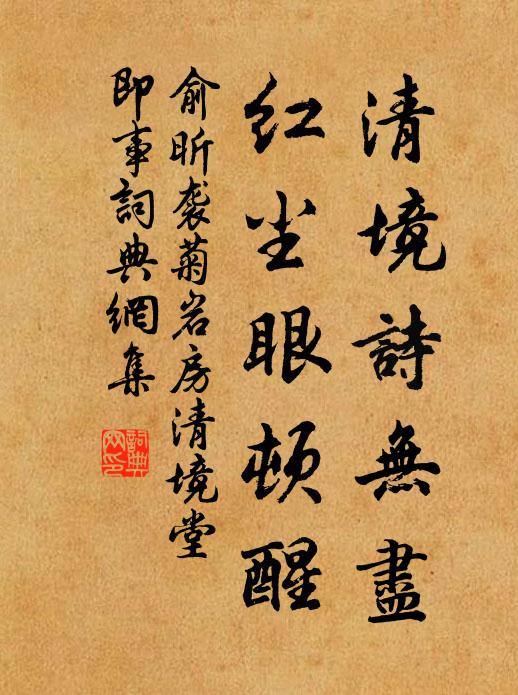 清境詩無盡
紅尘眼頓醒
俞昕袭菊岩房清境堂
即事詞典網集
詞典网印